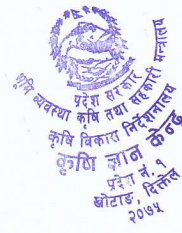 प्रदेश सरकार
भूमि व्यवस्था कृषि तथा सहकारी मन्त्रालय
कृषि विकास निर्देशनालय
कृषि ज्ञान केन्द्र
प्रदेश नं. १
खोटाङ, दिक्तेल
२०७५